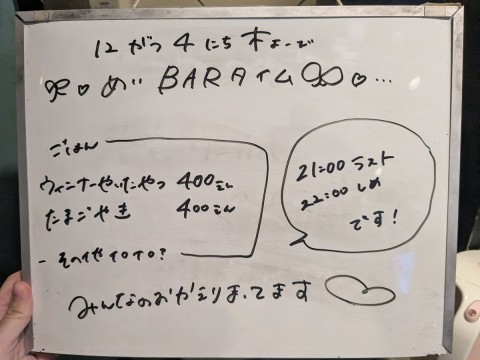 12がつ4にち 木よーび
♡めいBARタイム♡…
ごはん
ウィンナーやいたやつ 400えん
たまごやき 400えん
- そのたやイロイロ?
21:00 ラスト
22:00 しめ
です!
みんなのおかえりまってます